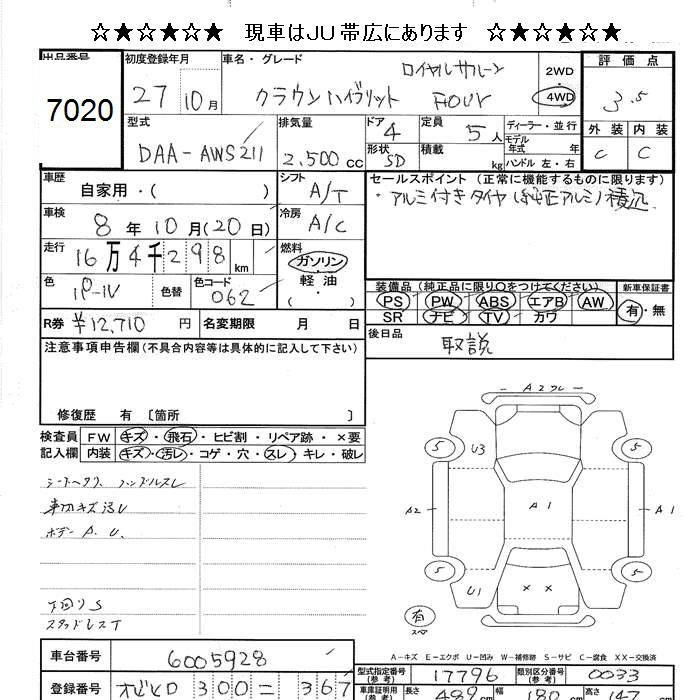 ☆★☆★☆★ 現車はJU帯広にあります ☆★☆★☆★
出品番号 初度登録年月 車名・グレード 評価点
7020 27 10月 クラウンハイブリット ロイヤルサルーン Four 2WD 4WD 3.5
型式 排気量 ドア 4 定員 5人 ディーラー・並行 外装 内装
DAA-AWS211 2.500cc 形状 SD 積載 kg モデル年式 年 ハンドル 左・右 C C
車歴 自家用・( ) シフト A/T セールスポイント(正常に機能するものに限ります)
・アルミ付きタイヤ(純正アルミ)積込
車検 8年10月(20日) 冷房 A/C
走行 16万4千298km 燃料 ガソリン・軽油( )
色 色替 色コード 062 装備品(純正品に限り○をつけてください) 新車保証書
PS PW ABS エアB AW 有・無
SR ナビ TV カワ
R券 ¥12,710円 名変期限 月 日 後日品 取説
注意事項申告欄(不具合内容等は具体的に記入して下さい)
修復歴 有〔箇所 〕
検査員記入欄 FW キズ・飛石・ヒビ割・リペア跡・×要
内装 キズ・汚レ・コゲ・穴・スレ・キレ・破レ
シートヘタリ ハンドルスレ
ボデー A.U.
下回りS
スタッドレスT
A2
5 U3 5
A2 A1 A1
5 U1 × × 5
有 スペア
A-キズ E-エクボ U-凹み W-補修跡 S-サビ C-腐食 XX-交換済
車台番号 6005928 型式指定番号(参考) 17796 類別区分番号(参考) 0033
登録番号 オビヒロ 300 367 車庫証明用(参考) 長さ 489cm 幅 180cm 高さ 147cm